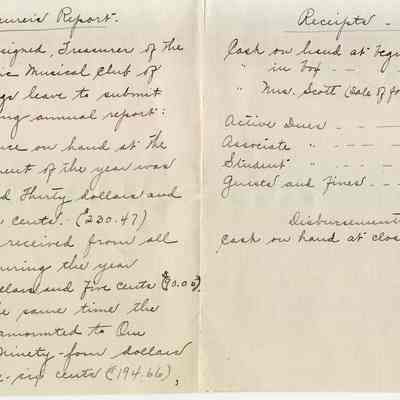 surer's Report.
signed, Treasurer of the
ic Musical Club of
gs leave to submit
ing annual report:
nce on hand at the
ment of the year was
d Thirty dollars and
cents. ($230.47)
received from all
during the year
ollars and five cents ($90.05)
e same time the
amounted to One
Ninety-four dollars
-six cents ($194.66),
Receipts -
Cash on hand at begi
" in box - -
" Mrs. Scott (Sale of
Active Dues - - -
Associate " - - - -
Student " - - - -
Guests and Fines - - -
Disbursement
Cash on hand at clos